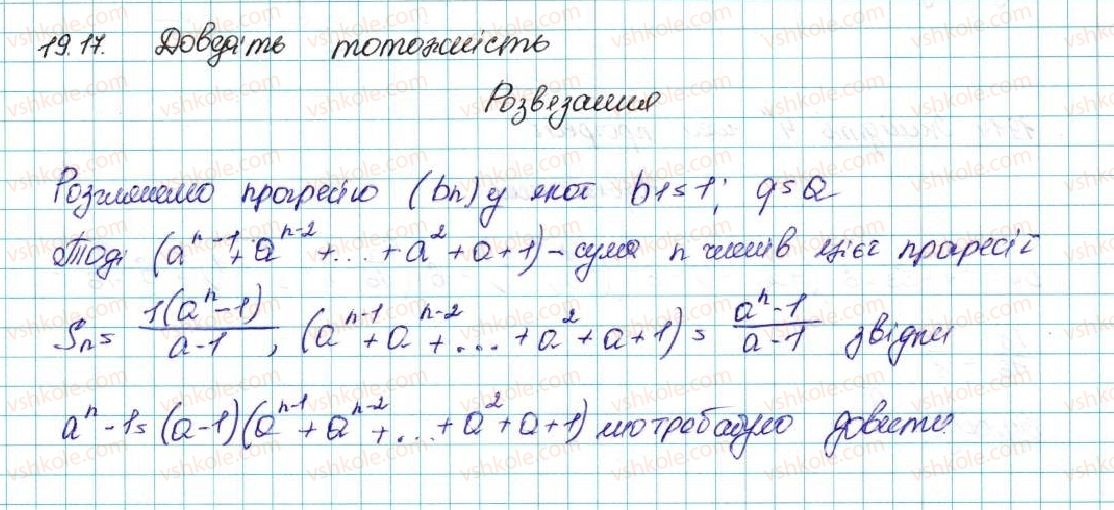 19.17. Доведіть тотожність
Розвезання
Розглянемо прогресію (bn) у якої b1 = 1; q = a
Тоді (a^{n-1} + a^{n-2} + ... + a^2 + a + 1) - сума n членів цієї прогресії
Sn = \frac{1(a^n - 1)}{a - 1}, (a^{n-1} + a^{n-2} + ... + a^2 + a + 1) = \frac{a^n - 1}{a - 1} звідки
a^n - 1 = (a - 1)(a^{n-1} + a^{n-2} + ... + a^2 + a + 1) що треба було довести.